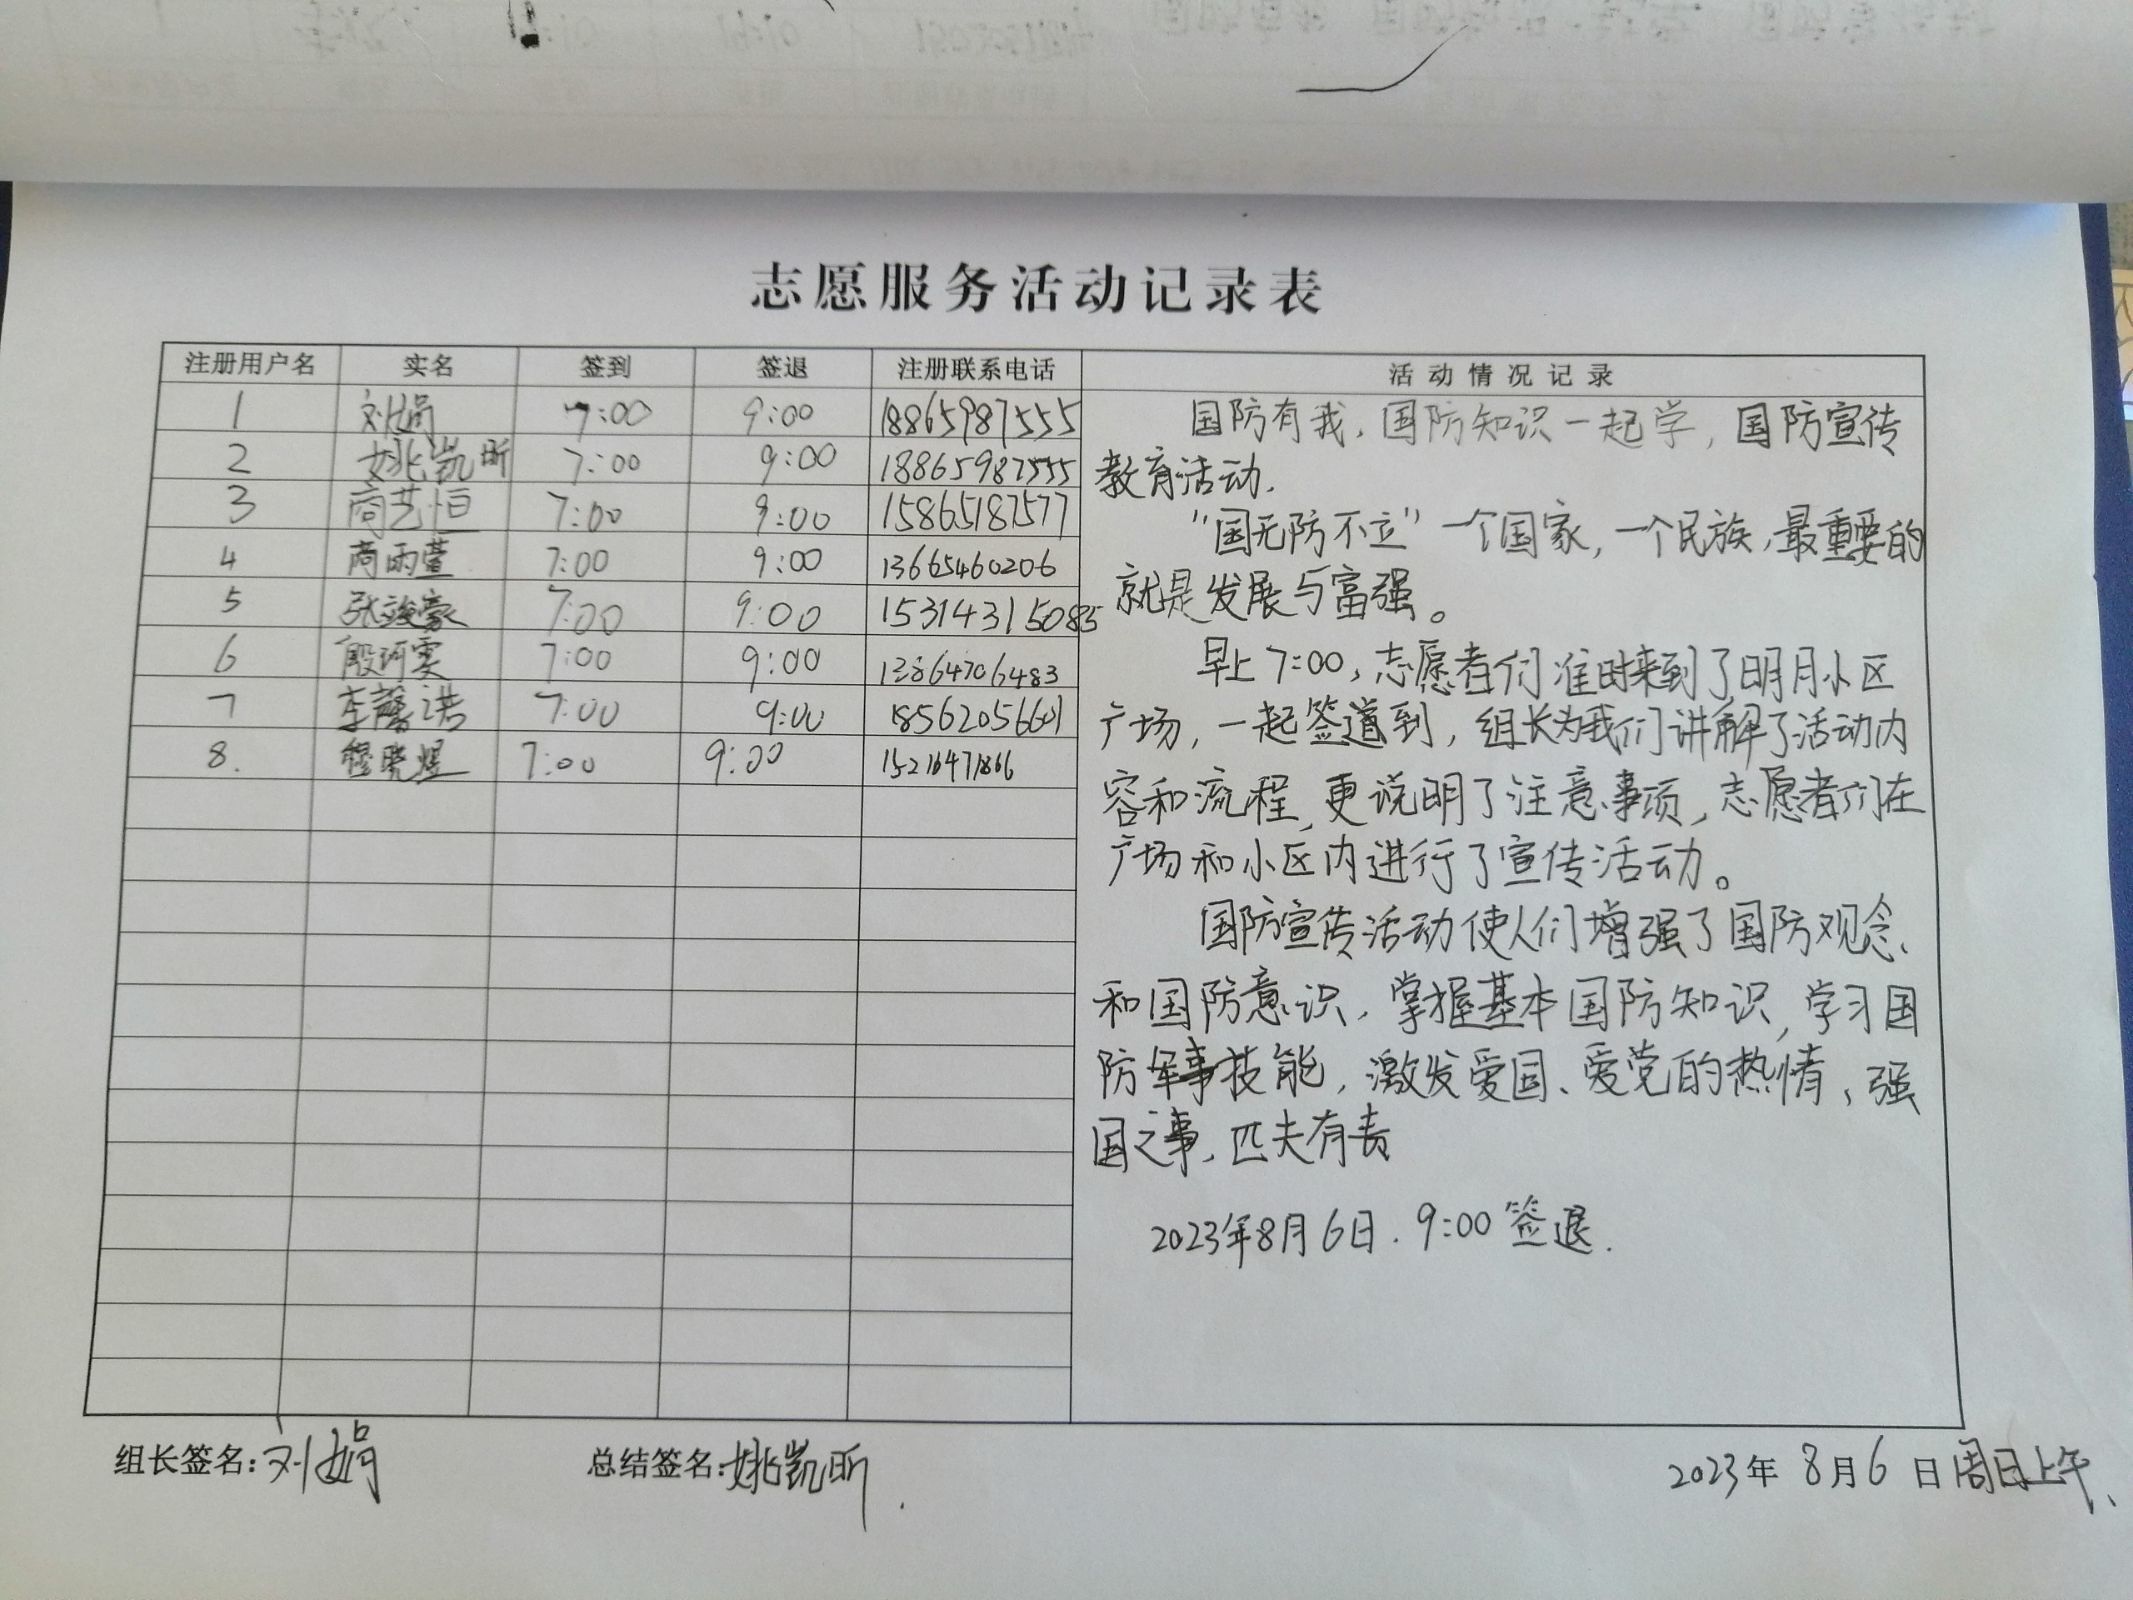 志愿服务活动记录表
注册用户名 实名 签到 签退 注册联系电话 活动情况记录
1 刘娟 7:00 9:00 18865987555
2 姚凯昕 7:00 9:00 18865987555
3 商艺恒 7:00 9:00 15865187577
4 商雨萱 7:00 9:00 13665460206
5 张竣豪 7:00 9:00 15314315085
6 殷珂雯 7:00 9:00
7 李馨诺 7:00 9:00 18562056601
8. 穆晓煜 7:00 9:00
国防有我，国防知识一起学，国防宣传
教育活动.
“国无防不立”一个国家，一个民族，最重要的
就是发展与富强。
早上7:00，志愿者们准时来到了明月小区
广场，一起签道到，组长为我们讲解了活动内
容和流程，更说明了注意事项，志愿者们在
广场和小区内进行了宣传活动。
国防宣传活动使人们增强了国防观念、
和国防意识，掌握基本国防知识，学习国
防军事技能，激发爱国、爱党的热情、强
国之事，匹夫有责
2023年8月6日.9:00签退.
组长签名:刘娟 总结签名:姚凯昕. 2023年8月6日周日上午、